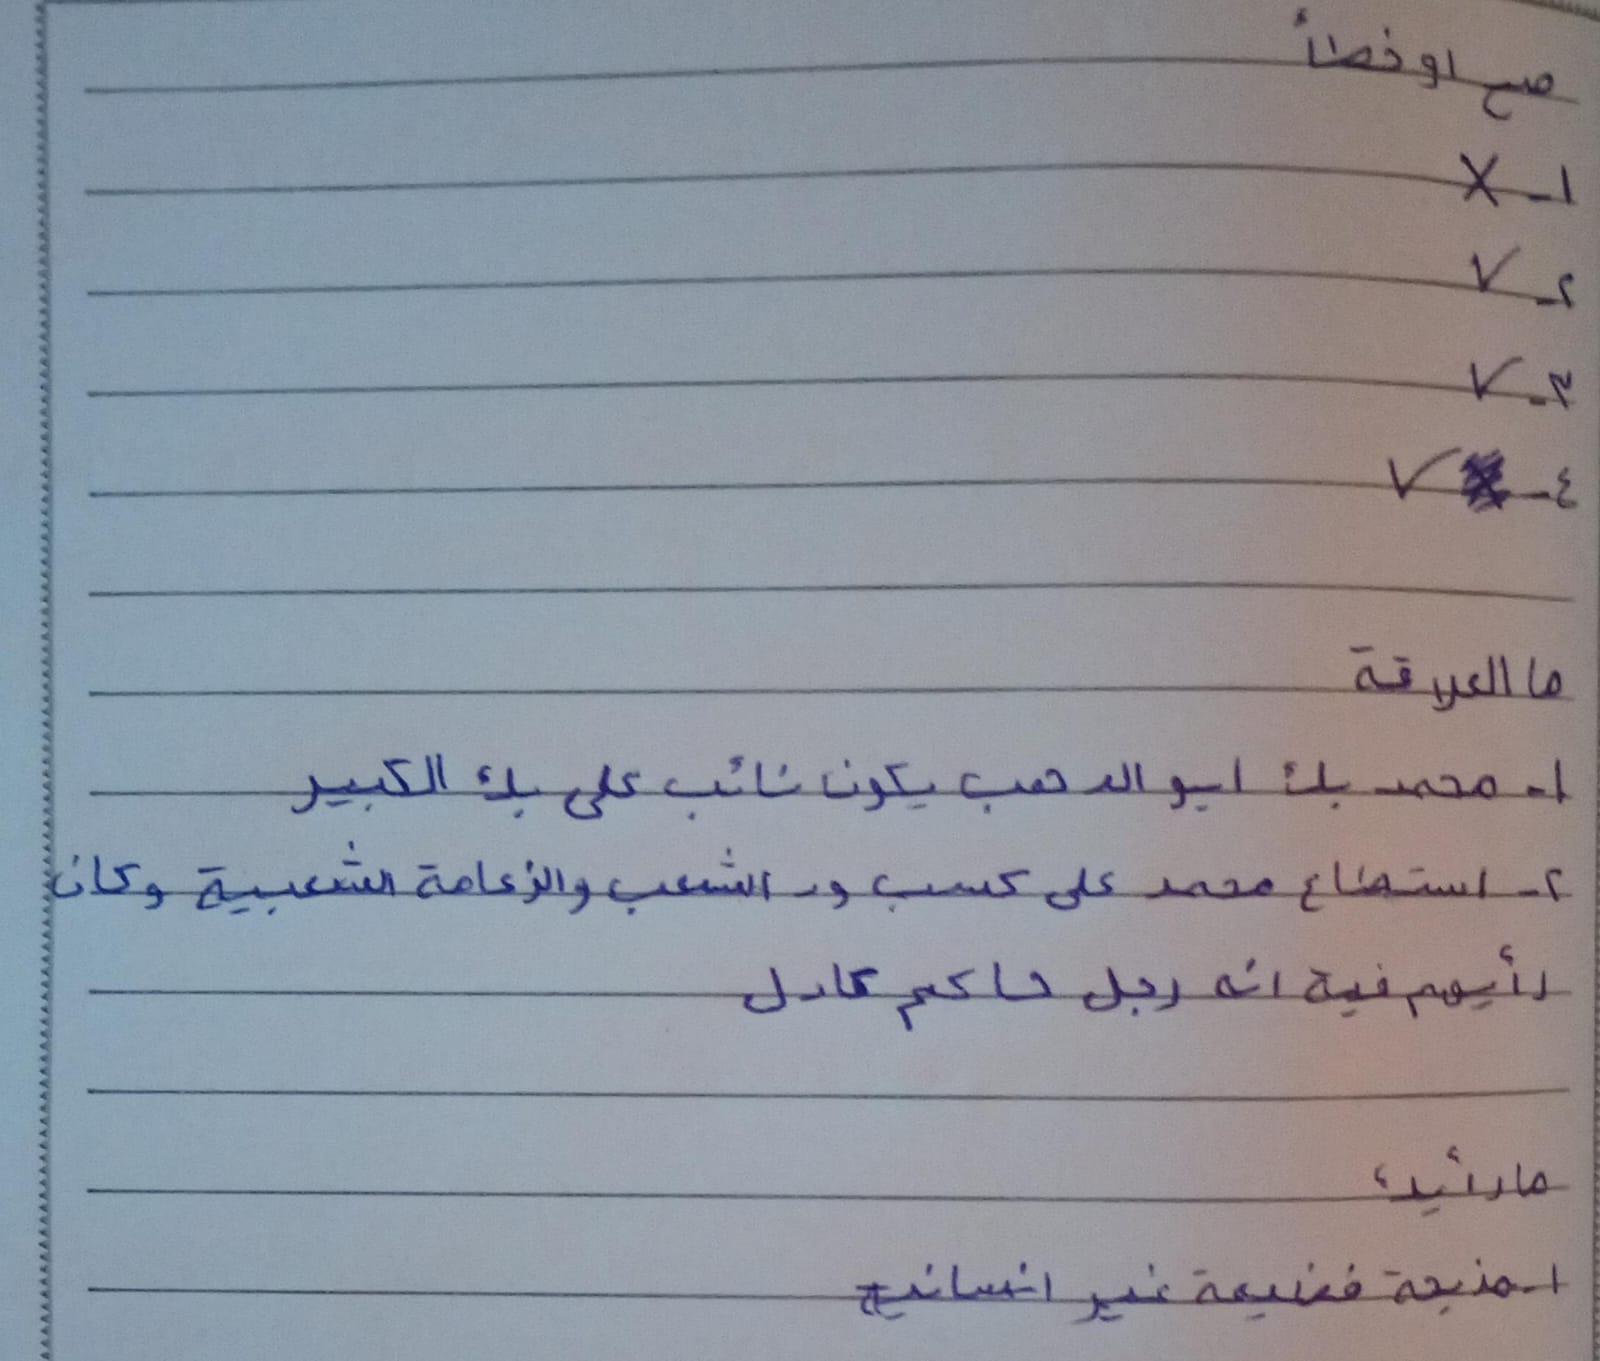 صح او خطأ
١- X
٢- ✓
٣- ✓
٤- ✓
ما العلاقة
١- محمد بك ابو الدهب يكون نائب على بك الكبير
٢- استطاع محمد على كسب ود الشعب والزعامة الشعبية وكان
رأيهم فية انه رجل حاكم عادل
ما رأيك
١- مذبحة فظيعة غير انسانية